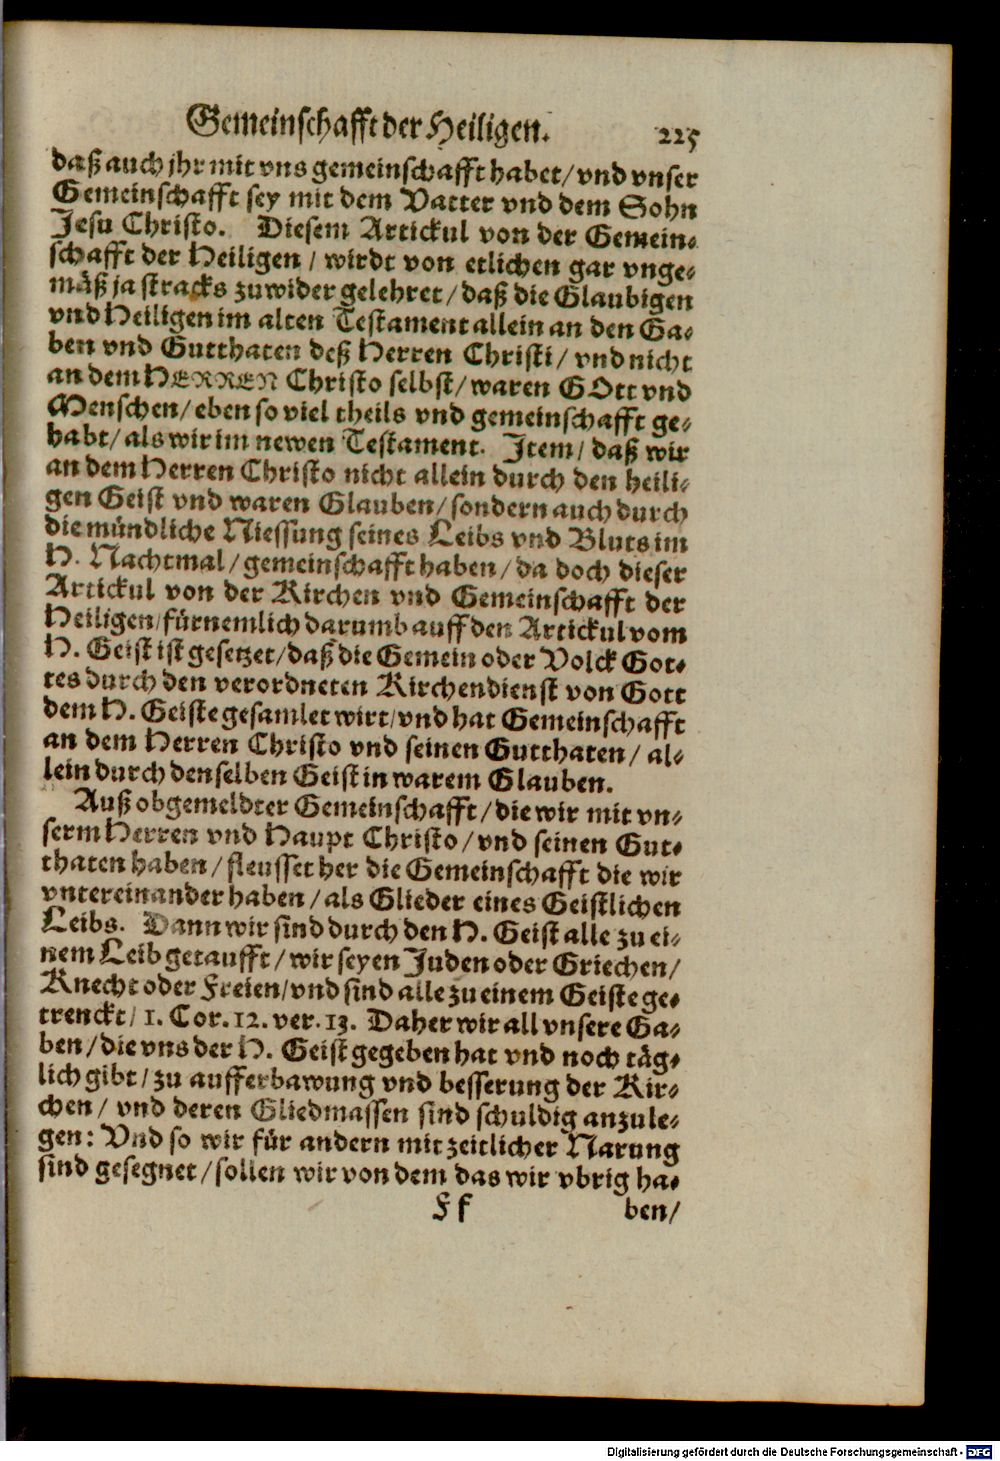 Gemeinschafft der Heiligen. 225
daß auch jhr mit vns gemeinschafft habet/ vnd vnser
Gemeinschafft sey mit dem Vatter vnd dem Sohn
Jesu Christo. Diesem Artickul von der Gemein-
schafft der Heiligen / wirdt von etlichen gar vnge-
mäß ja stracks zuwider gelehret/ daß die Glaubigen
vnd Heiligen im alten Testament allein an den Ga-
ben vnd Gutthaten deß Herren Christi/ vnd nicht
an dem HERREN Christo selbst/ waren GOtt vnd
Menschen/ eben so viel theils vnd gemeinschafft ge-
habt/ als wir im newen Testament. Item/ daß wir
an dem Herren Christo nicht allein durch den heili-
gen Geist vnd waren Glauben/ sondern auch durch
die mündliche Niessung seines Leibs vnd Bluts im
H. Nachtmal/ gemeinschafft haben/ da doch dieser
Artickul von der Kirchen vnd Gemeinschafft der
Heiligen/ fürnemlich darumb auff den Artickul vom
H. Geist ist gesetzet/ daß die Gemein oder Volck Got-
tes durch den verordneten Kirchendienst von Gott
dem H. Geiste gesamlet wirt/ vnd hat Gemeinschafft
an dem Herren Christo vnd seinen Gutthaten/ al-
lein durch denselben Geist in warem Glauben.
Auß obgemeldter Gemeinschafft/ die wir mit vn-
serm Herren vnd Haupt Christo/ vnd seinen Gut-
thaten haben/ fleusset her die Gemeinschafft die wir
vntereinander haben/ als Glieder eines Geistlichen
Leibs. Dann wir sind durch den H. Geist alle zu ei-
nem Leib getaufft/ wir seyen Juden oder Griechen/
Knecht oder Freien/ vnd sind alle zu einem Geiste ge-
trenckt/ 1. Cor. 12. ver. 13. Daher wir all vnsere Ga-
ben/ die vns der H. Geist gegeben hat vnd noch täg-
lich gibt/ zu aufferbawung vnd besserung der Kir-
chen/ vnd deren Gliedmassen sind schuldig anzule-
gen: Vnd so wir für andern mit zeitlicher Narung
sind gesegnet/ sollen wir von dem das wir vbrig ha-
Ff ben/
Digitalisierung gefördert durch die Deutsche Forschungsgemeinschaft - DFG